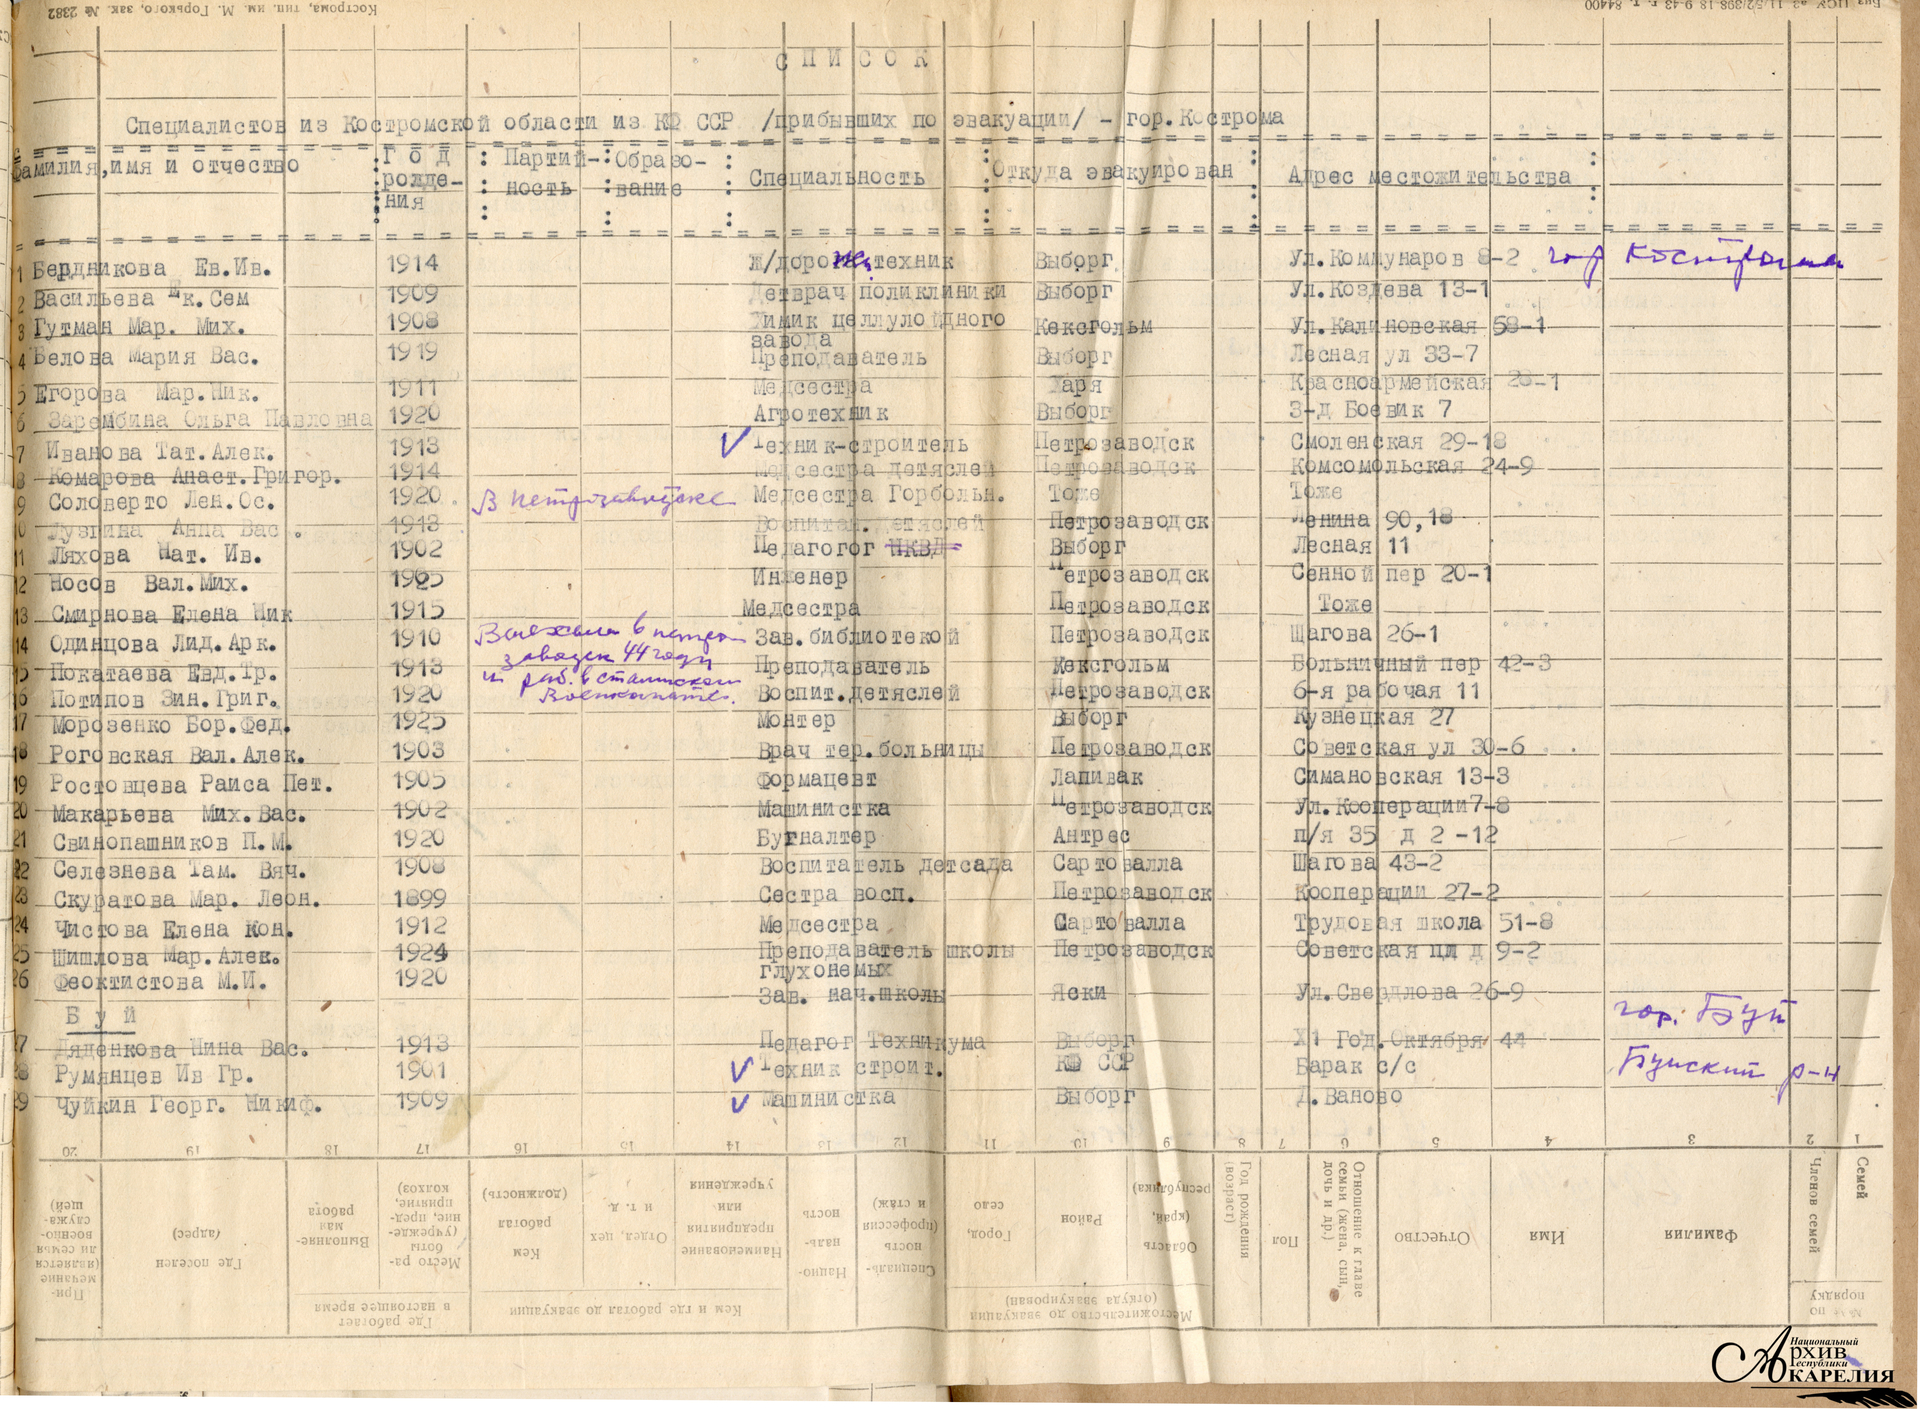 Кострома, тип. им. М. Горького, зак. № 2382
СПИСОК
Специалистов из Костромской области из КФ ССР /прибывших по эвакуации/ - гор.Кострома
Фамилия,имя и отчество : Год рождения : Партийность : Образование : Специальность : Откуда эвакуирован : Адрес местожительства :
1 Бердникова Ев.Ив. 1914 Ж/дорож.техник Выборг Ул.Коммунаров 8-2 гор Кострома
2 Васильева Ек.Сем 1909 Детврач поликлиники Выборг Ул.Козлева 13-1
3 Гутман Мар. Мих. 1908 Химик целлулоидного завода Кексгольм Ул.Калиновская 58-1
4 Белова Мария Вас. 1919 Преподаватель Выборг Лесная ул 33-7
5 Егорова Мар.Ник. 1911 Медсестра Харя Красноармейская 28-1
6 Зарембина Ольга Павловна 1920 Агротехник Выборг З-д Боевик 7
7 Иванова Тат.Алек. 1913 Техник-строитель Петрозаводск Смоленская 29-18
8 Комарова Анаст.Григор. 1914 Медсестра детяслей Петрозаводск Комсомольская 24-9
9 Соловерто Лен.Ос. 1920 В петрозаводске Медсестра Горбольн. Тоже Тоже
10 Лузгина Анна Вас. 1913 Воспитан. детяслей Петрозаводск Ленина 90,18
11 Ляхова Нат. Ив. 1902 Педагогог НКВД Выборг Лесная 11
12 Носов Вал.Мих. 1905 Инженер Петрозаводск Сенной пер 20-1
13 Смирнова Елена Ник 1915 Медсестра Петрозаводск Тоже
14 Одинцова Лид.Арк. 1910 Выехала в петро Зав.библиотекой Петрозаводск Шагова 26-1
заводск 44 году
15 Покатаева Евд.Тр. 1913 и раб. в сталинском Преподаватель Кексгольм Больничный пер 42-3
16 Потипов Зин.Григ. 1920 Военкомате. Воспит.детяслей Петрозаводск 6-я рабочая 11
17 Морозенко Бор.Фед. 1925 Монтер Выборг Кузнецкая 27
18 Роговская Вал.Алек. 1903 Врач тер.больницы Петрозаводск Советская ул 30-6
19 Ростовцева Раиса Пет. 1905 Формацевт Лапивак Симановская 13-3
20 Макарьева Мих.Вас. 1902 Машинистка Петрозаводск Ул.Кооперации 7-8
21 Свинопашников П.М. 1920 Бугналтер Антрес п/я 35 д 2 -12
22 Селезнева Там. Вяч. 1908 Воспитатель детсада Сартовалла Шагова 43-2
23 Скуратова Мар. Леон. 1899 Сестра восп. Петрозаводск Кооперации 27-2
24 Чистова Елена Кон. 1912 Медсестра Сартовалла Трудовая школа 51-8
25 Шишлова Мар.Алек. 1924 Преподаватель школы глухонемых Петрозаводск Советская пл д 9-2
26 Феоктистова М.И. 1920 Зав. нач.школы Яски Ул.Свердлова 26-9
Буй гор. Буй
27 Дяденкова Нина Вас. 1913 Педагог Техникума Выборг Х1 Год.Октября 44
28 Румянцев Ив Гр. 1901 Техник строит. КФ ССР Барак с/с Буйский р-н
29 Чуйкин Георг. Никиф. 1909 Машинистка Выборг Д.Ваново
20 19 18 17 16 15 14 13 12 11 10 9 8 7 6 5 4 3 2 1
Примечание (является ли семья военнослужащей)
Где поселен (адрес)
Где работает в настоящее время
Выполняемая работа
Место работы (учреждение, предприятие, колхоз)
Кем и где работал до эвакуации
Кем работал (должность)
Отдел, цех и т. д.
Наименование предприятия или учреждения
Национальность
Специальность (профессия и стаж)
Местожительство до эвакуации (откуда эвакуирован)
Город, село
Район
Область (край, республика)
Год рождения (возраст)
Пол
Отношение к главе семьи (жена, сын, дочь и др.)
Отчество
Имя
Фамилия
№№ по порядку
Членов семей
Семей
Национальный
Архив
Республики
Карелия